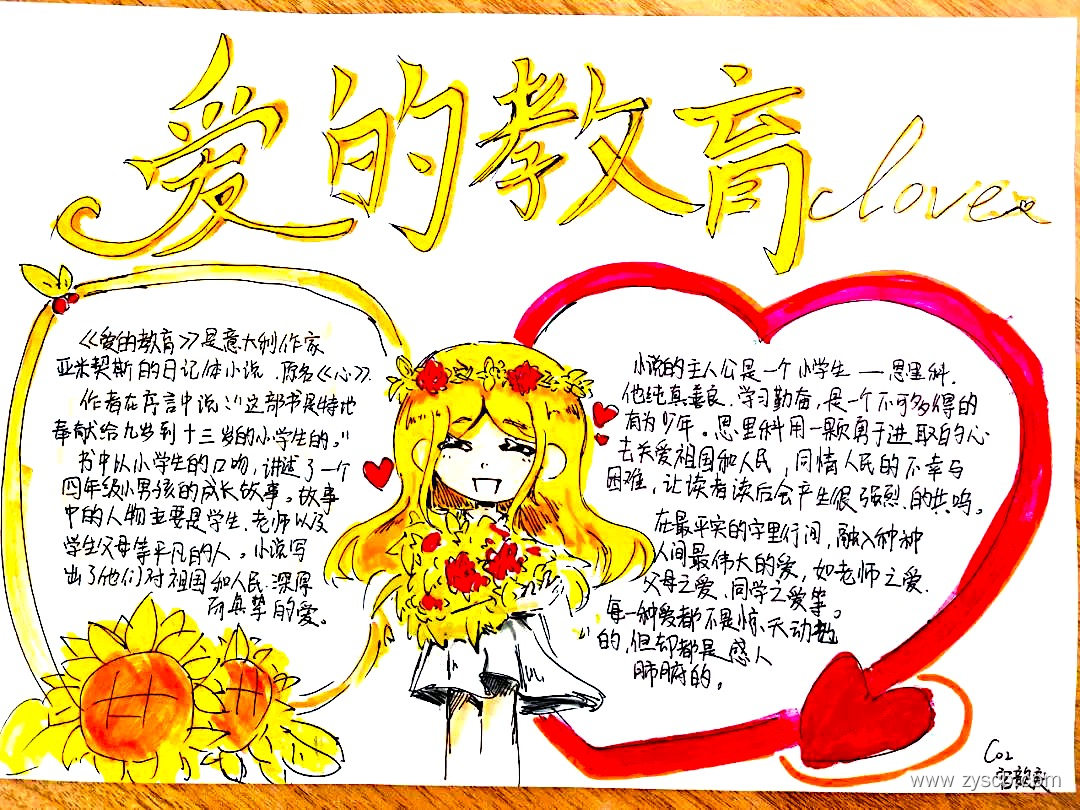 爱的教育
love
《爱的教育》是意大利作家
亚米契斯的日记体小说.原名《心》.
作者在序言中说:"这部书是特地
奉献给九岁到十三岁的小学生的。"
书中从小学生的口吻,讲述了一个
四年级小男孩的成长故事。故事
中的人物主要是学生.老师以及
学生父母等平凡的人。小说写
出了他们对祖国和人民.深厚
而真挚的爱。
小说的主人公是一个小学生—恩里科.
他纯真善良.学习勤奋,是一个不可多得的
有为少年。恩里科用一颗勇于进取的心
去关爱祖国和人民,同情人民的不幸与
困难,让读者读后会产生很强烈.的共鸣。
在最平实的字里行间,融入种种
人间最伟大的爱,如老师之爱.
父母之爱、同学之爱等。
每一种爱都不是惊天动地
的,但却都是感人
肺腑的。
www.zyscb.com